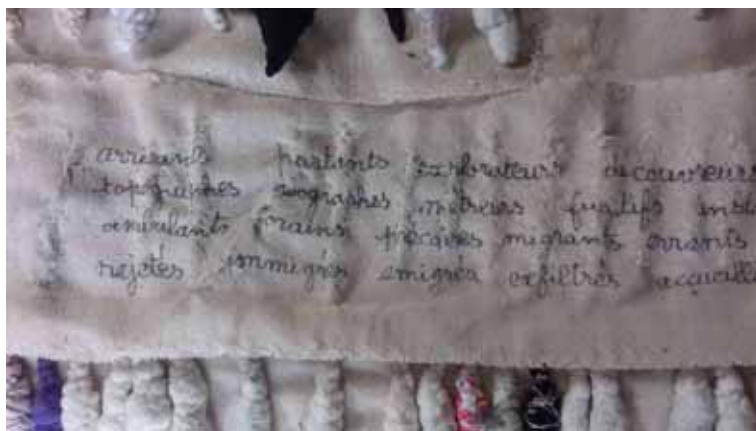 arrivants partants explorateurs découvreurs
topographes géographes métreurs fugitifs
ambulants forains précaires migrants errants
rejetés immigrés émigrés exfiltrés